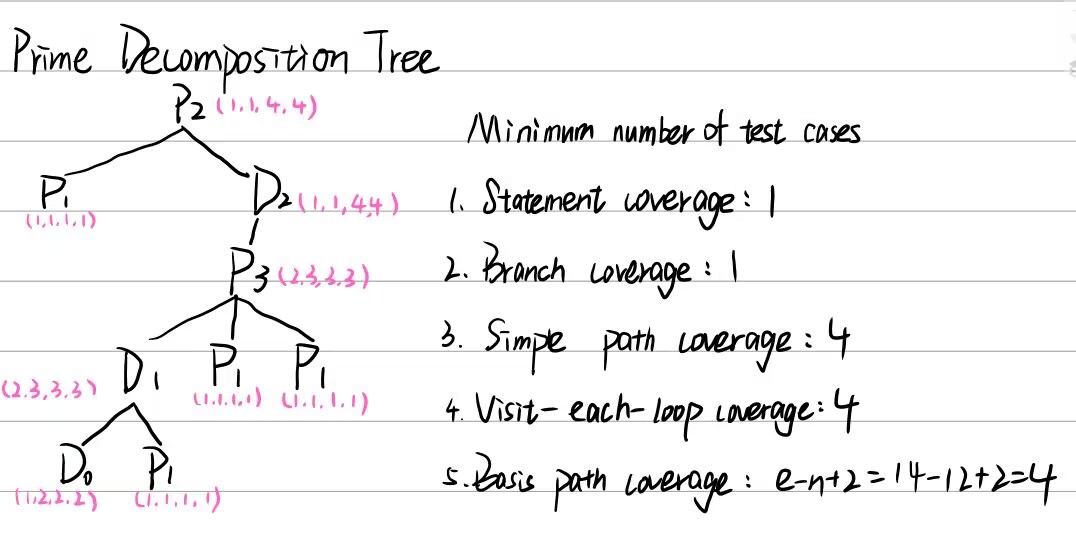 Prime Decomposition Tree
P2 (1.1.4.4)
Minimum number of test cases
P1 D2 (1,1,4,4)
(1,1.1.1)
1. Statement coverage: 1
P3 (2.3,3.3)
2. Branch coverage: 1
3. Simple path coverage: 4
D1 P1 P1
(2.3,3.3) (1.1.1.1) (1.1.1.1)
4. Visit-each-loop coverage: 4
D0 P1
(1,2,2,2) (1.1.1,1)
5. Basis path coverage: e-n+2=14-12+2=4